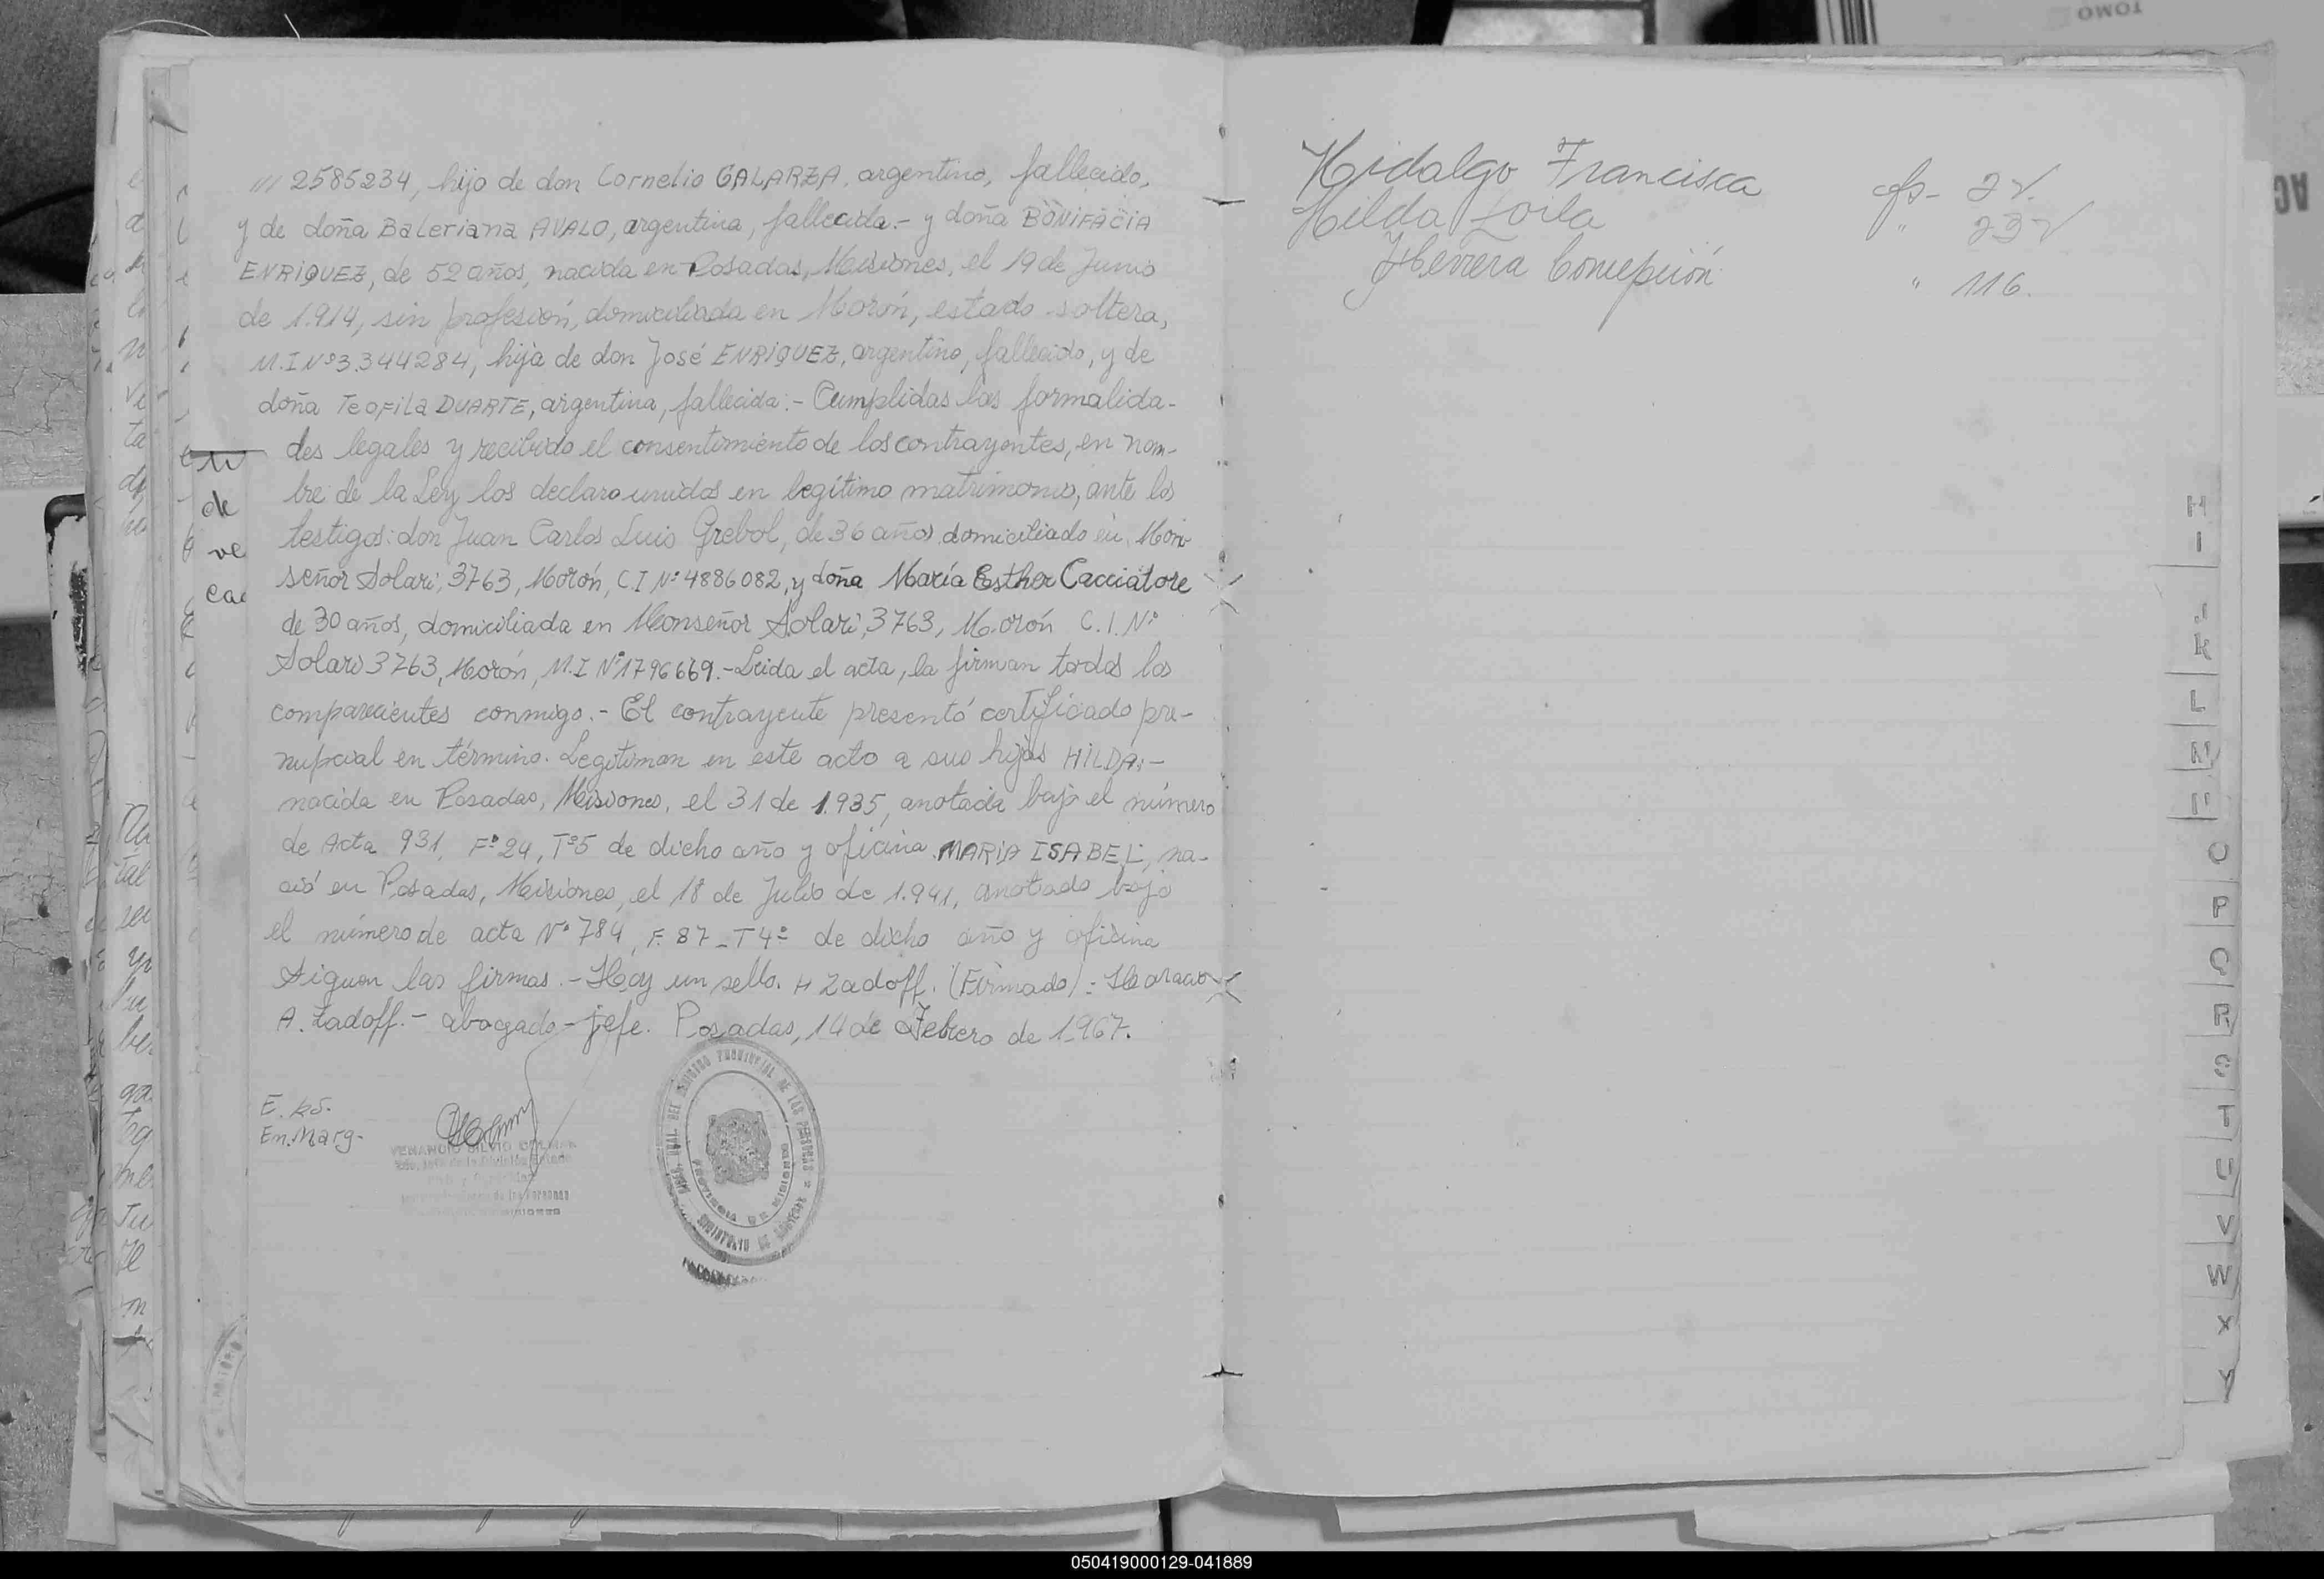 /// 2585234, hijo de don Cornelio GALARZA, argentino, fallecido,
y de doña Baleriana AVALO, argentina, fallecida.- y doña BONIFACIA
ENRIQUEZ, de 52 años, nacida en Posadas, Misiones, el 19 de Junio
de 1.914, sin profesión, domiciliada en Morón, estado soltera,
M.I Nº 3.344284, hija de don José ENRIQUEZ, argentino, fallecido, y de
doña Teofila DUARTE, argentina, fallecida.- Cumplidas las formalida-
des legales y recibido el consentimiento de los contrayentes, en nom-
bre de la Ley los declaro unidos en legítimo matrimonio, ante los
testigos: don Juan Carlos Luis Grebol, de 36 años, domiciliado en Mon-
señor Solari, 3763, Morón, C.I Nº 4886082, y doña María Esther Cacciatore
de 30 años, domiciliada en Monseñor Solari, 3763, Morón C.I. Nº
Solari 3763, Morón, M.I Nº 1796669.- Leida el acta, la firman todos los
comparecientes conmigo.- El contrayente presentó certificado pre-
nupcial en término. Legitiman en este acto a sus hijas HILDA:-
nacida en Posadas, Misiones, el 31 de 1.935, anotada bajo el número
de Acta 931, Fº 24, Tº5 de dicho año y oficina. MARIA ISABEL, na-
ció en Posadas, Misiones, el 18 de Julio de 1.941, anotado bajo
el número de acta Nº 784, F. 87 - T 4º de dicho año y oficina
Siguen las firmas.- Hay un sello. H Zadoff. (Firmado): Horacio
A. Zadoff.- abogado - jefe. Posadas, 14 de Febrero de 1.967.
E. En. Marg-
VENANCIO SILVIO
de las Personas
MISIONES
REGISTRO PROVINCIAL DE LAS PERSONAS
MINISTERIO DE
PROVINCIA DE MISIONES
de
ve
Hidalgo Francisca fs- 2v.
Hilda Zoila " 23v
Herrera Concepción " 116.
H
I
J
K
L
M
N
O
P
Q
R
S
T
U
V
W
X
Y
TOMO
050419000129-041889